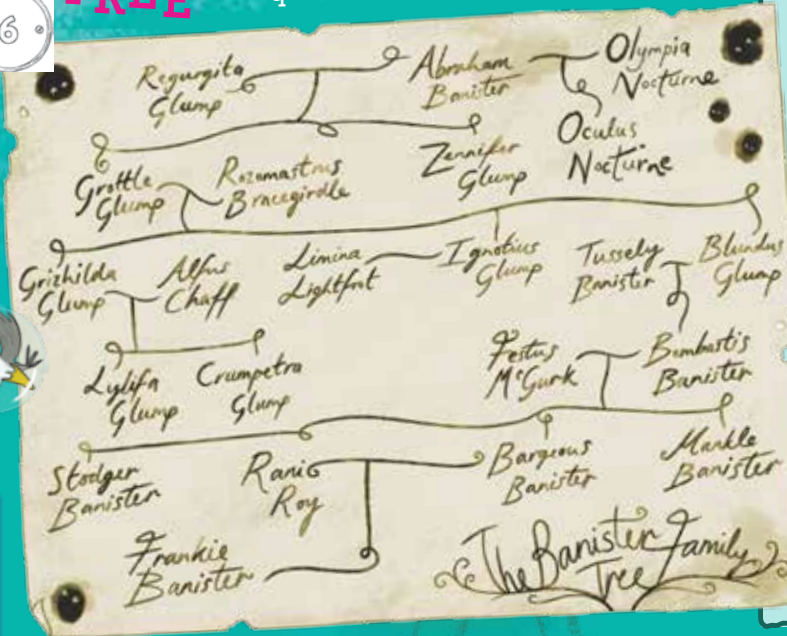 6
FREE
Regurgita
Glump
Abraham
Banister
Olympia
Nocturne
Oculus
Nocturne
Grottle
Glump
Rozomastrus
Bracegirdle
Zennifer
Glump
Grizhilda
Glump
Alfus
Chaff
Limina
Lightfoot
Ignotius
Glump
Tussely
Banister
Blundus
Glump
Lylifa
Glump
Crumpetra
Glump
Festus
McGurk
Bombastis
Banister
Stodger
Banister
Rani
Roy
Bargeous
Banister
Markle
Banister
Frankie
Banister
The Banister Family
Tree